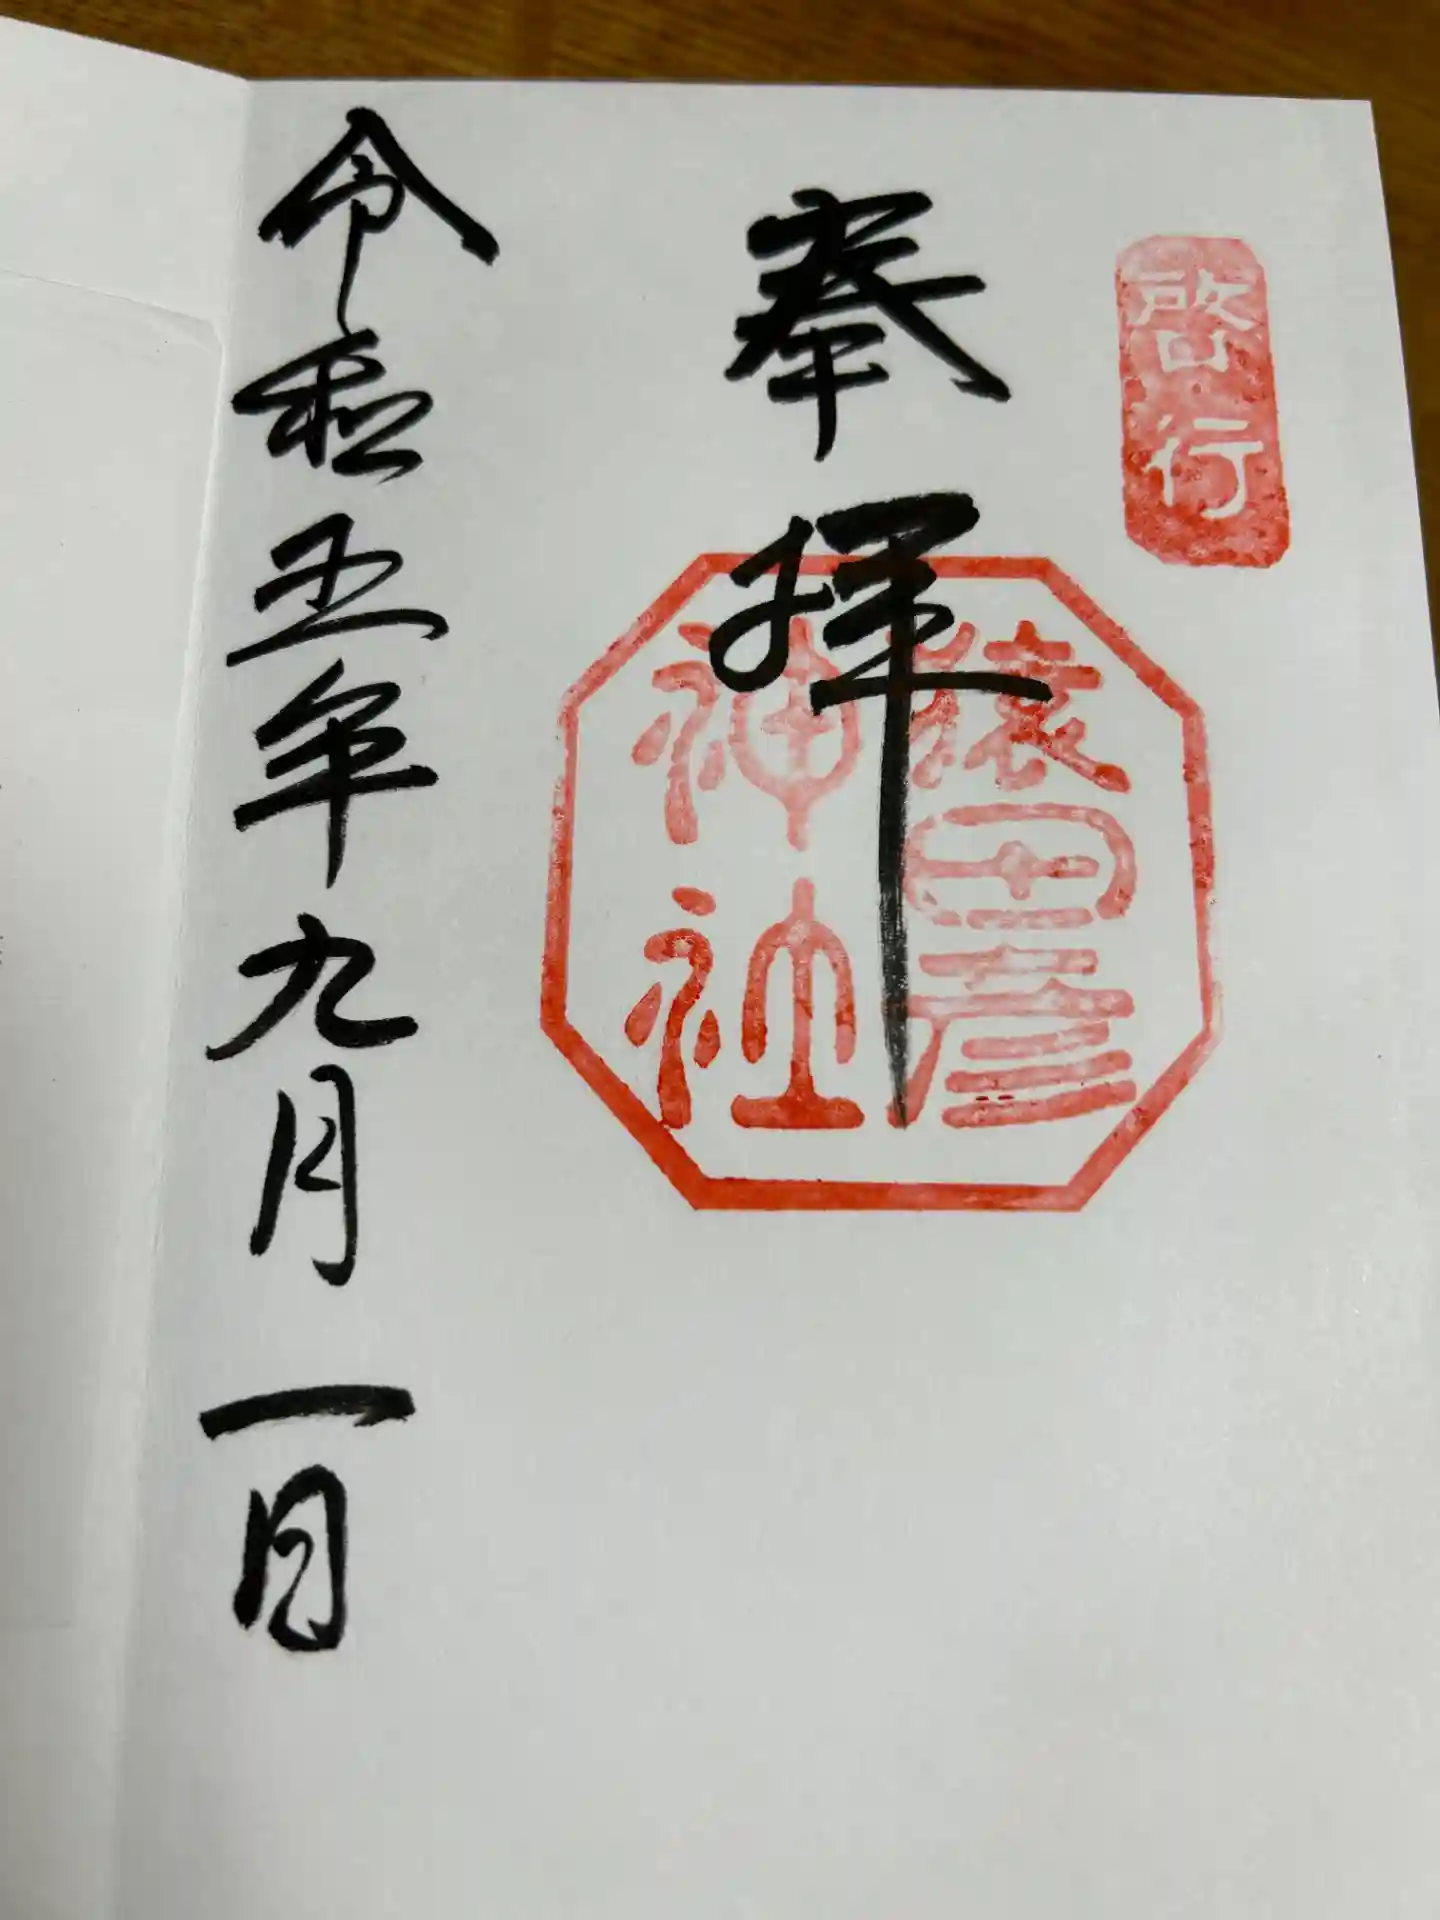 啓行
奉拝
猿田彦
神社
令和五年九月一日